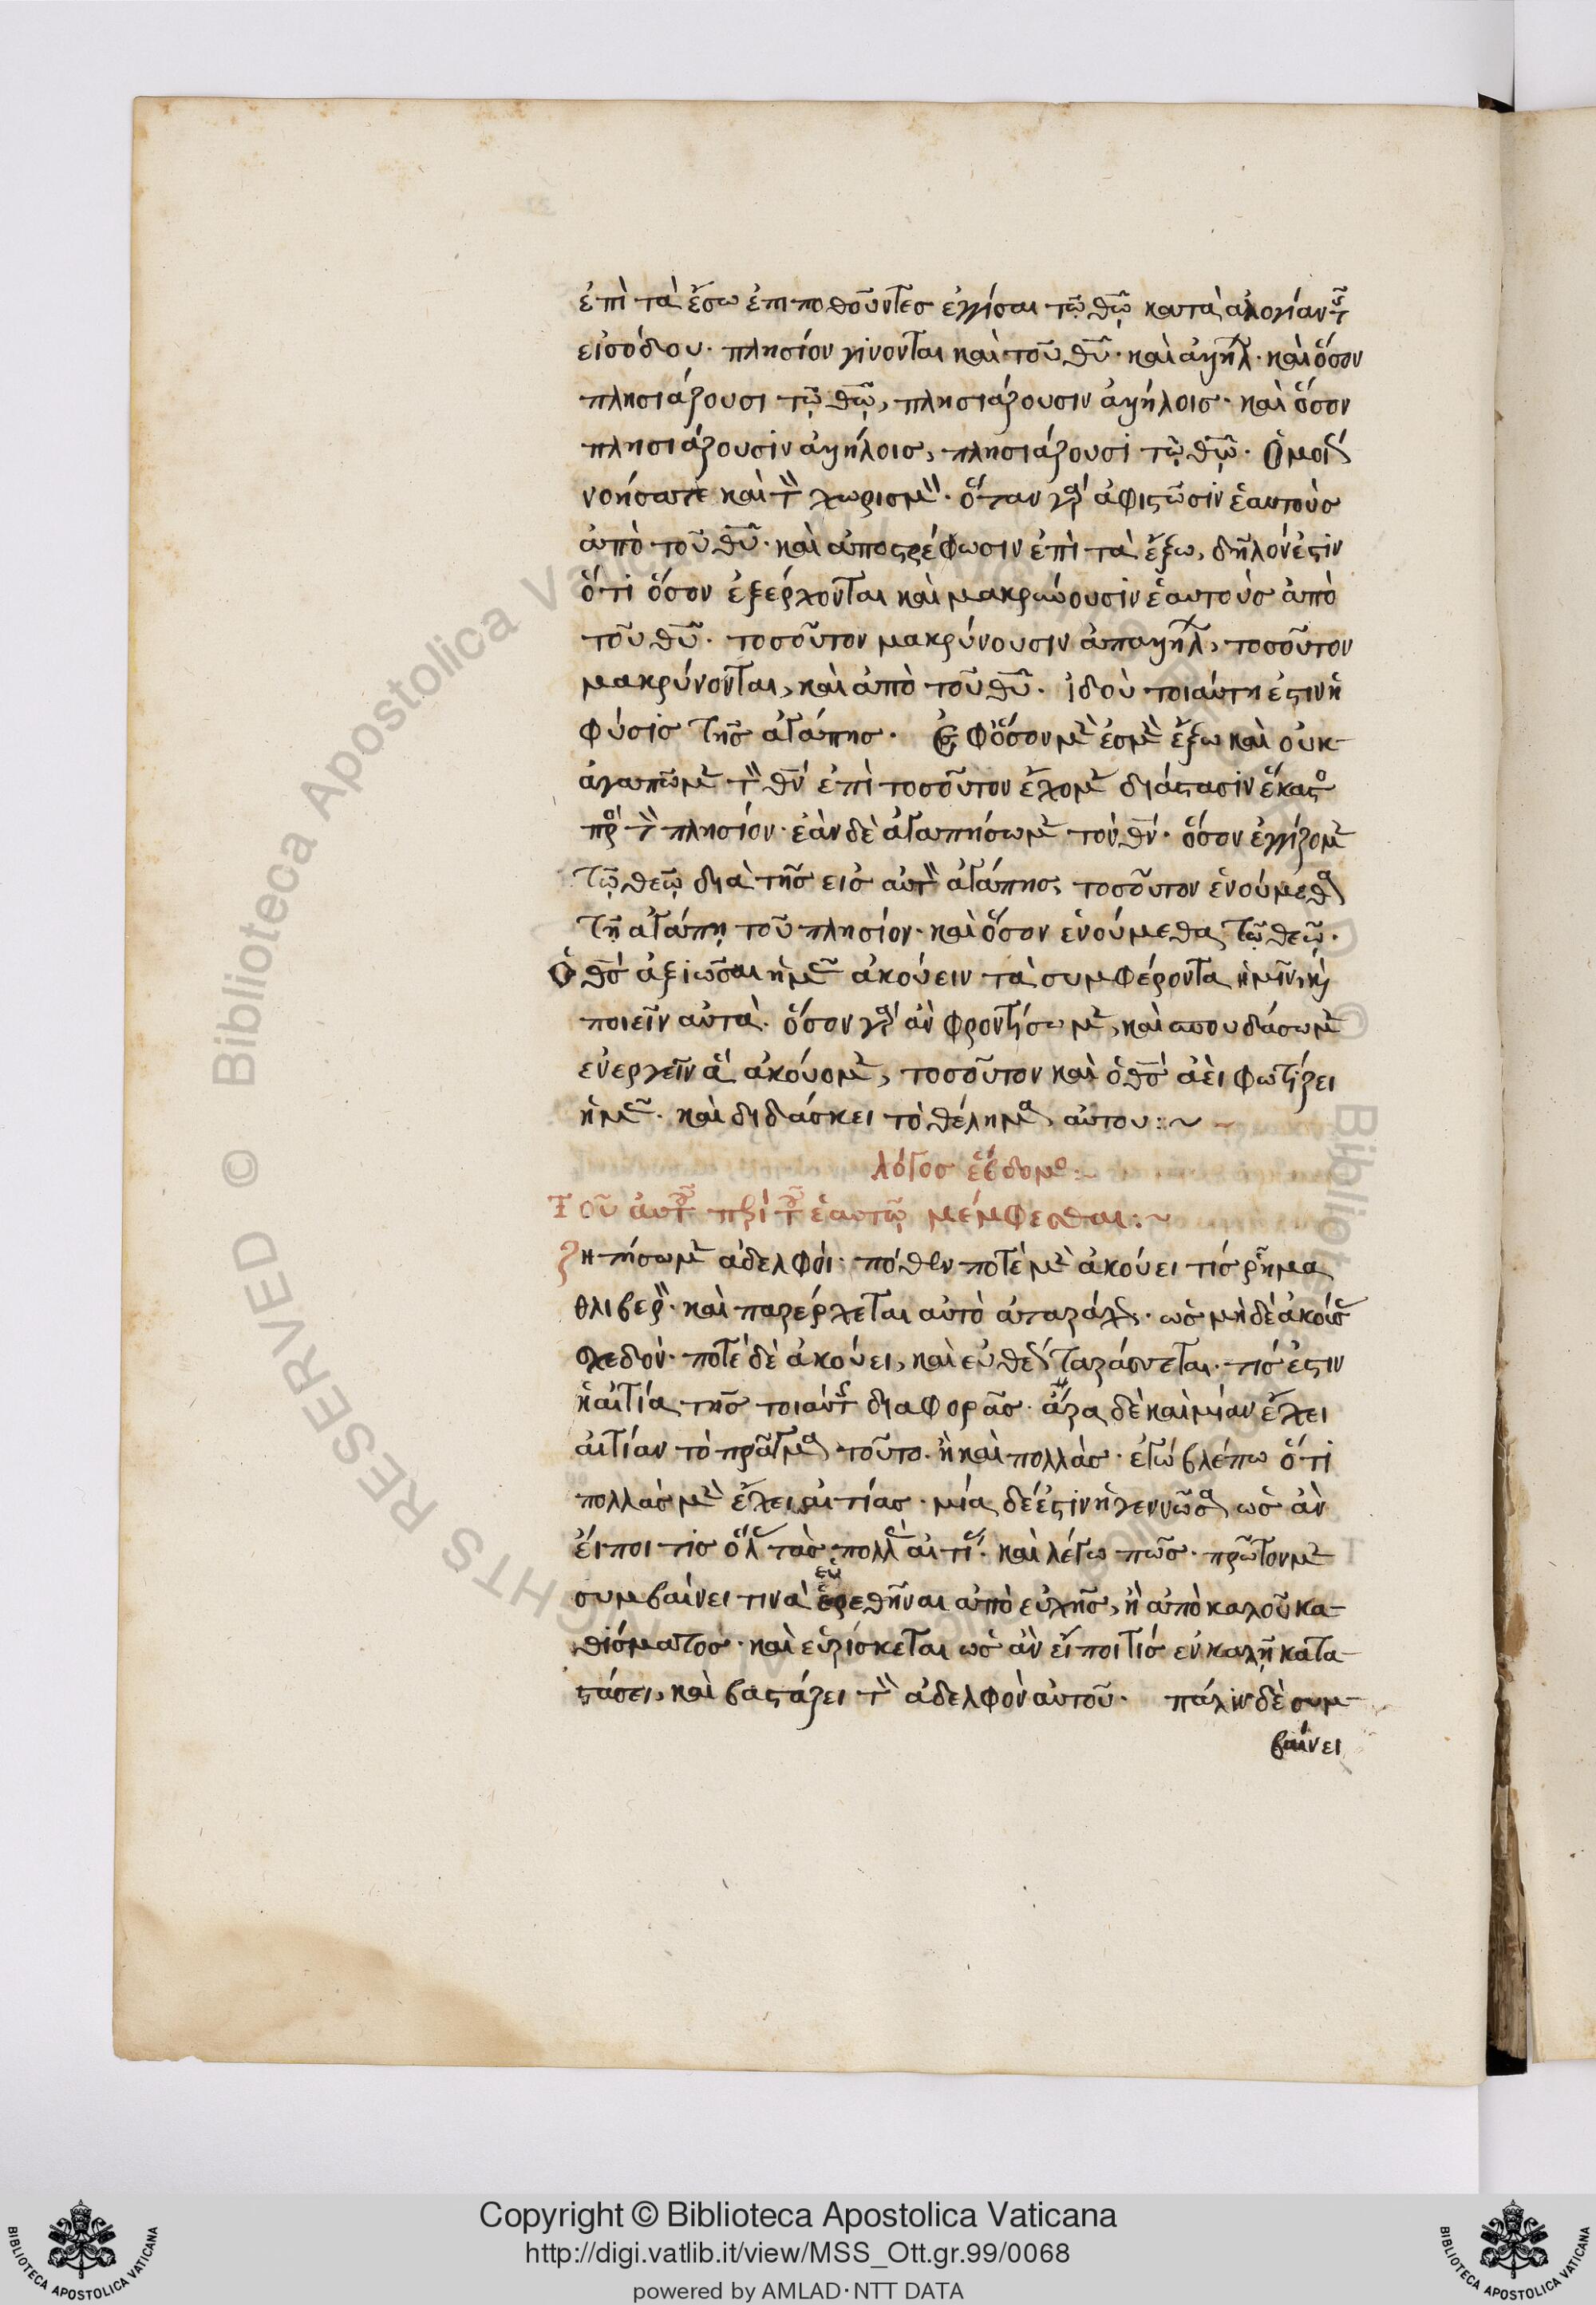 ἐπὶ τὰ ἔσω ἐπιποθοῦντες ἐγγίσαι τῷ θῷ κατὰ ἀναλογίαν τῆς
εἰσόδου· πλησίον γίνονται καὶ τοῦ θυ· καὶ ἀλλήλ· καὶ ὅσον
πλησιάζουσι τῷ θῷ, πλησιάζουσιν ἀλλήλοις· καὶ ὅσον
πλησιάζουσιν ἀλλήλοις, πλησιάζουσι τῷ θῷ. Ὁμοί
νοήσατε καὶ τὸν χωρισμὸν· ὅταν γὰρ ἀφιστῶσιν ἑαυτοὺς
ἀπὸ τοῦ θυ· καὶ ἀποστρέφωσιν ἐπὶ τὰ ἔξω, δῆλόν ἐστιν
ὅτι ὅσον ἐξέρχονται καὶ μακρύνουσιν ἑαυτοὺς ἀπὸ
τοῦ θυ. τοσοῦτον μακρύνουσιν ἀπ' ἀλλήλ, τοσοῦτον
μακρύνονται, καὶ ἀπὸ τοῦ θυ. ἰδοὺ τοιαύτη ἐστὶν ἡ
φύσις τῆς ἀγάπης. Ἐφ' ὅσον μὲν ἐσμὲν ἔξω καὶ οὐκ
ἀγαπῶμεν τὸν θν ἐπὶ τοσοῦτον ἔχομεν διάστασιν ἕκαστο
πρὸς τὸν πλησίον· ἐὰν δὲ ἀγαπήσωμεν τὸν θν· ὅσον ἐγγίζομεν
τῷ θεῷ διὰ τῆς εἰς αὐτὸν ἀγάπης, τοσοῦτον ἑνούμεθα
τῇ ἀγάπῃ τοῦ πλησίον· καὶ ὅσον ἑνούμεθα, τῷ θεῷ.
Ὁ θς ἀξιώσαι ἡμᾶς ἀκούειν τὰ συμφέροντα ἡμῖν, καὶ
ποιεῖν αὐτὰ. ὅσον γὰρ ἂν φροντίσωμεν, καὶ σπουδάσωμεν
ἐνεργεῖν ἃ ἀκούομεν, τοσοῦτον καὶ ὁ θς ἀεὶ φωτίζει
ἡμᾶς. καὶ διδάσκει τὸ θέλημα αὐτου:~
λόγος ἕβδομο:~
Τοῦ αὐτοῦ περὶ τοῦ ἑαυτῷ μέμφεσθαι:~
ζητήσωμεν ἀδελφοί· πόθεν ποτὲ μὲν ἀκούει τίς ῥῆμα
θλιβερὸν· καὶ παρέρχεται αὐτὸ ἀταράχως· ὡς μὴ δὲ ἀκούσας
σχεδόν· ποτὲ δὲ ἀκούει, καὶ εὐθέως ταράσσεται· τίς ἐστιν
ἡ αἰτία τῆς τοιαύτης διαφορᾶς· ἆρα δὲ καὶ μίαν ἔχει
αἰτίαν τὸ πρᾶγμα τοῦτο· ἢ καὶ πολλάς· ἐγὼ βλέπω ὅτι
πολλὰς μὲν ἔχει αἰτίας· μία δέ ἐστιν ἡ γεννῶσα ὡς ἂν
εἴποι τις ὅλας τὰς πολλὰς αἰτίας· καὶ λέγω πῶς· πρῶτον μὲν
συμβαίνει τινὰ εὑρεθῆναι ἀπὸ εὐχῆς, ἢ ἀπὸ καλοῦ κα-
θίσματος· καὶ εὑρίσκεται ὡς ἂν εἴποι τίς ἐν καλῇ κατα-
στάσει, καὶ βαστάζει τὸν ἀδελφὸν αὐτοῦ. πάλιν δὲ συμ-
βαίνει
Copyright © Biblioteca Apostolica Vaticana
http://digi.vatlib.it/view/MSS_Ott.gr.99/0068
powered by AMLAD·NTT DATA